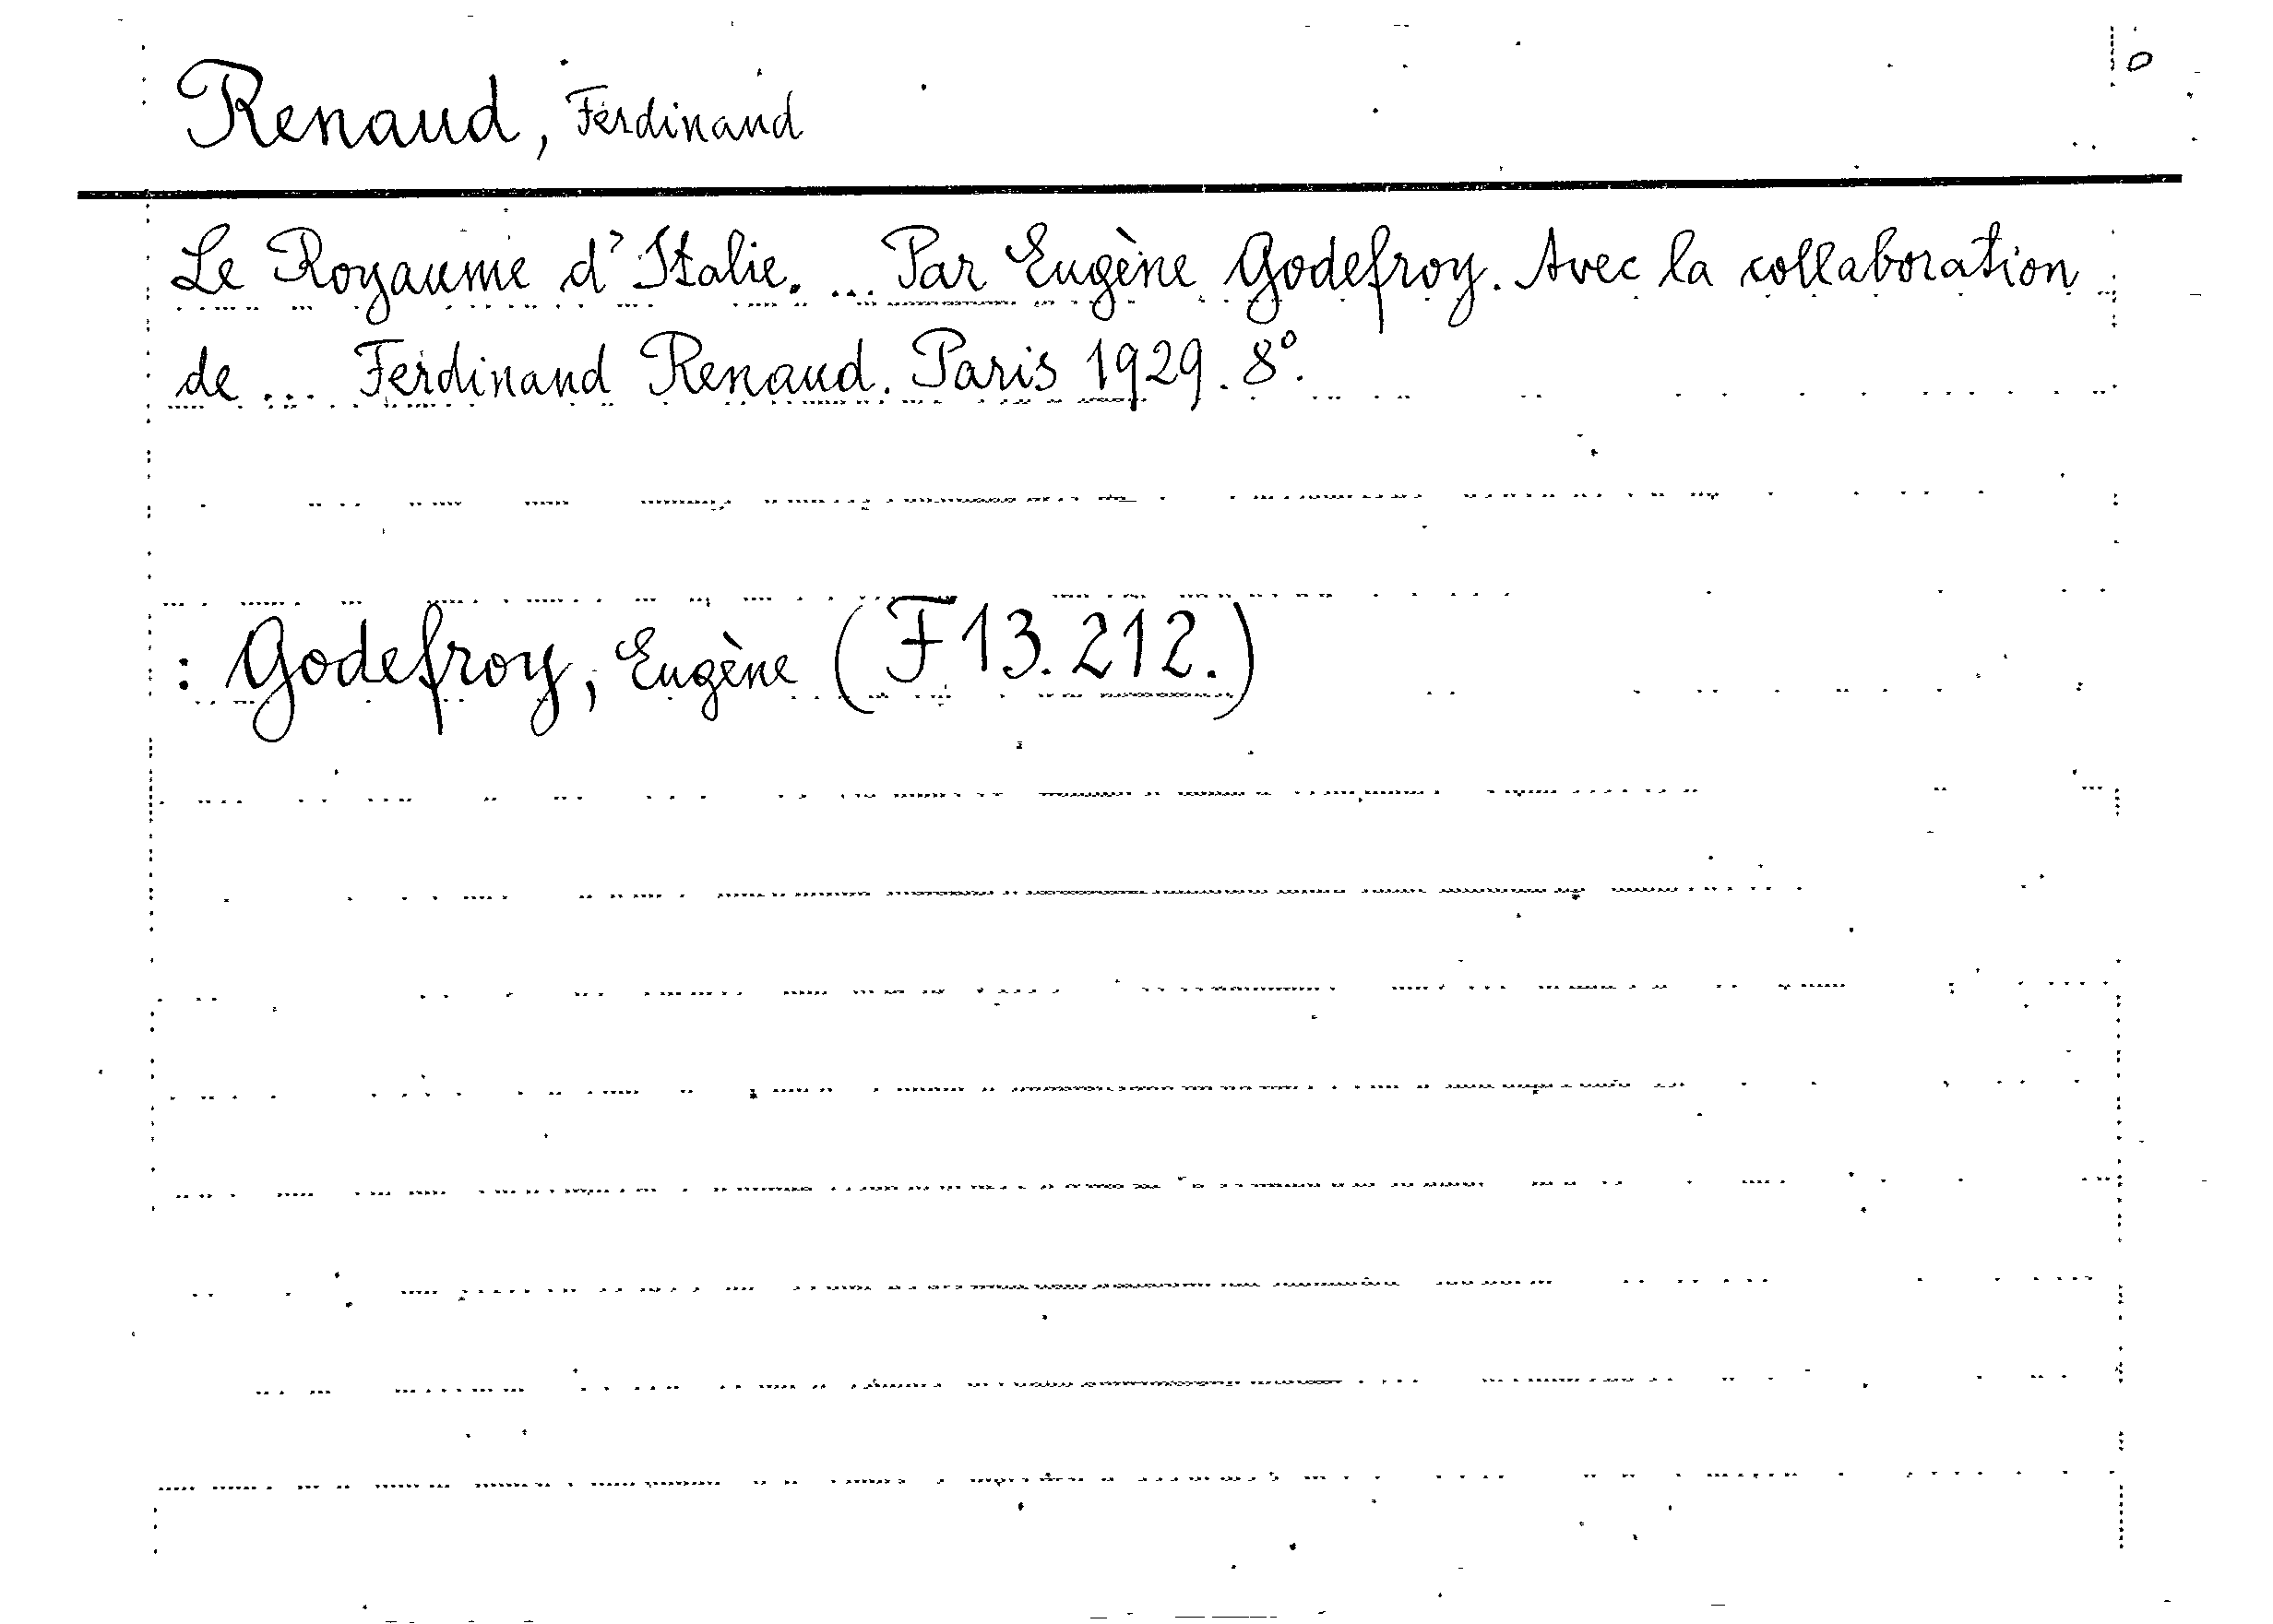 Renaud, Ferdinand
Le Royaume d'Italie. ... Par Eugène Godefroy. Avec la collaboration
de ... Ferdinand Renaud. Paris 1929. 8°.
: Godefroy, Eugène (F 13.212.)